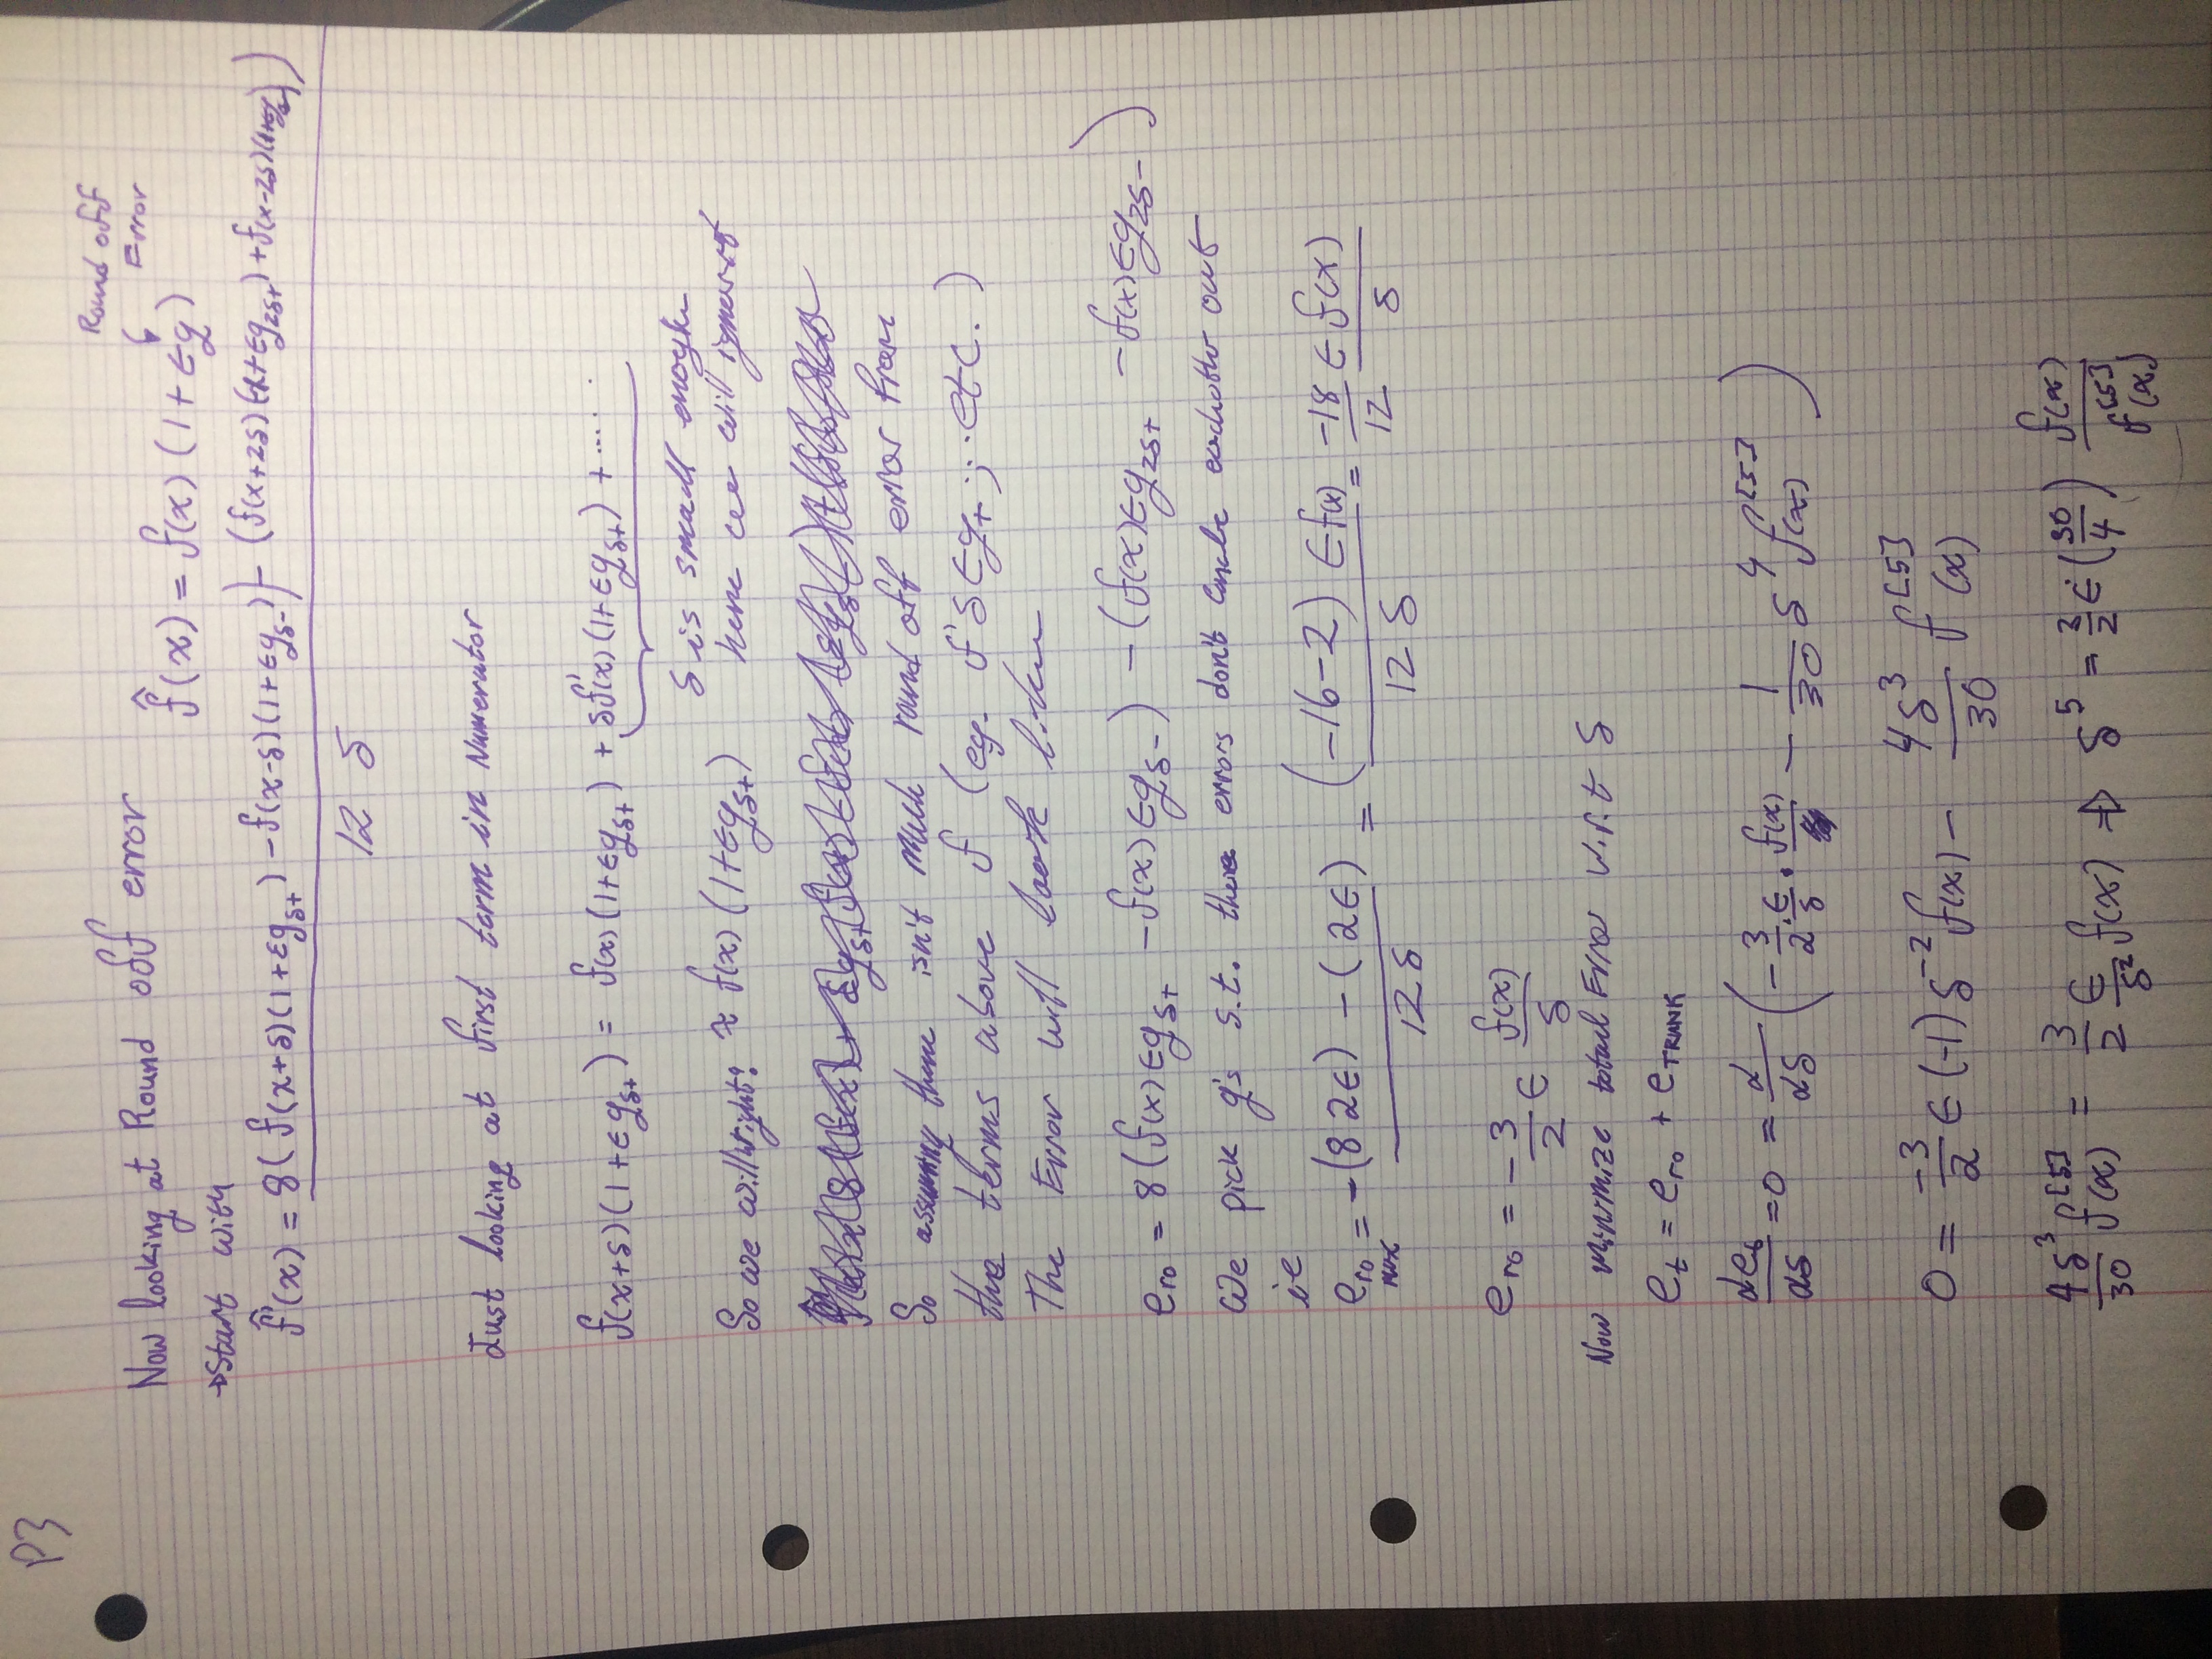 P3
Round off
Error
Now looking at Round off error
f̂(x) = f(x) (1 + εg)
→Start with
f̂'(x) = 8( f(x+δ)(1+εg_δ+) - f(x-δ)(1+εg_δ-) ) - (f(x+2δ)(1+εg_2δ+) + f(x-2δ)(1+εg_2δ-))
12 δ
Just looking at first term in Numerator
f(x+δ)(1+εg_δ+) = f(x)(1+εg_δ+) + δf'(x)(1+εg_δ+) + .....
δ is small enough
So we will wright: ≈ f(x) (1+εg_δ+)
here we will ignore it
So assuming there isn't much round off error from
the terms above f (eg. f'δεg+ ;.. etc. )
The Error will look like
e_ro = 8(f(x)εg_δ+ - f(x)εg_δ-) - (f(x)εg_2δ+ - f(x)εg_2δ-)
We pick g's s.t. these errors don't eachother out
ie
e_ro max = -(8 2ε) - (2ε) / 12δ = (-16-2) εf(x) / 12 δ = -18/12 ε f(x) / δ
e_ro = -3/2 ε f(x)/δ
Now minimize total Error w.r.t δ
e_t = e_ro + e_TRUNK
de_t/dδ = 0 = d/dδ ( -3/2 · ε/δ · f(x) - 1/30 δ^4 f^[5](x) )
0 = -3/2 ε (-1) δ^-2 f(x) - 4δ^3/30 f^[5](x)
4δ^3/30 f^[5](x) = 3/2 ε/δ^2 f(x) ⇒ δ^5 = 3/2 ε (30/4) f(x)/f^[5](x)